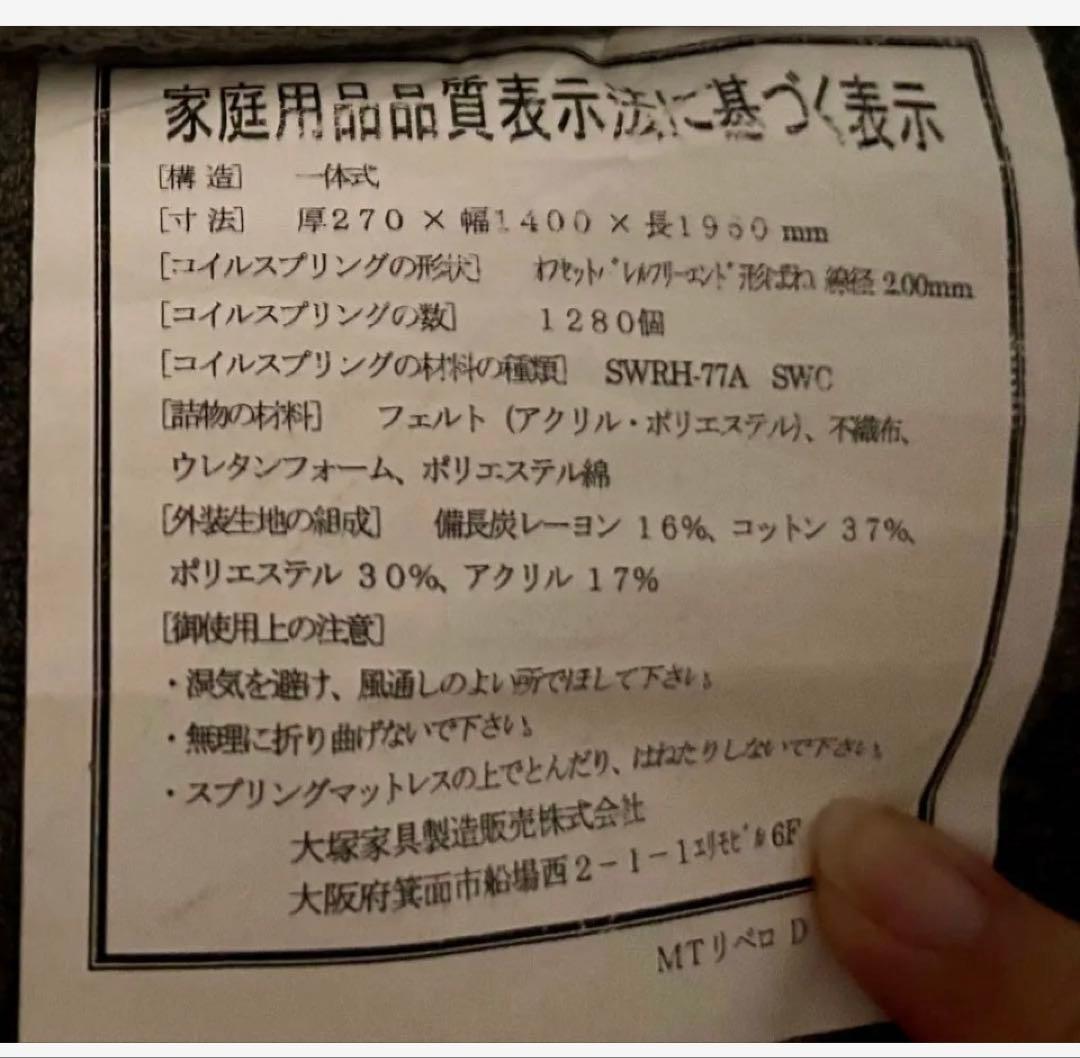 家庭用品品質表示法に基づく表示
[構 造] 一体式
[寸 法] 厚270 × 幅1400 × 長1960 mm
[コイルスプリングの形状] オフセットパレルフリーエンド形ばね 線径 2.00mm
[コイルスプリングの数] 1280個
[コイルスプリングの材料の種類] SWRH-77A SWC
[詰物の材料] フェルト (アクリル・ポリエステル)、不織布、
ウレタンフォーム、ポリエステル綿
[外装生地の組成] 備長炭レーヨン 16%、コットン 37%、
ポリエステル 30%、アクリル 17%
[御使用上の注意]
・湿気を避け、風通しのよい所でほして下さい。
・無理に折り曲げないで下さい。
・スプリングマットレスの上でとんだり、はねたりしないで下さい。
大塚家具製造販売株式会社
大阪府箕面市船場西2-1-1エリモビル6F
MTリペロ D